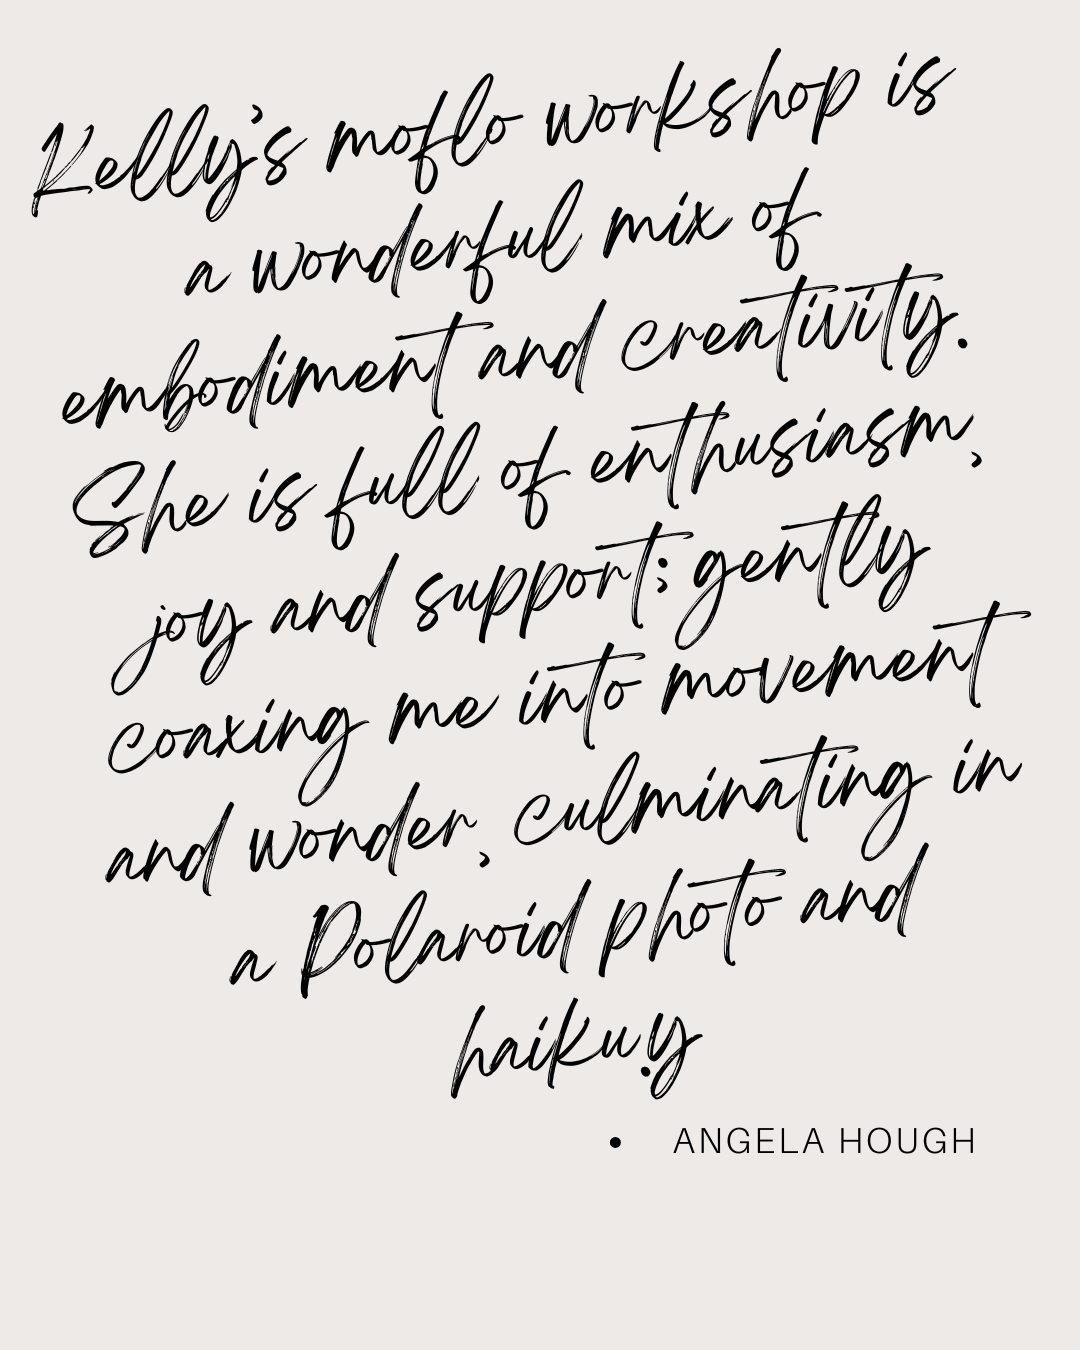 Kelly's moflo workshop is
a wonderful mix of
embodiment and creativity.
She is full of enthusiasm,
joy and support; gently
coaxing me into movement
and wonder, culminating in
a Polaroid photo and
haiku.y
• ANGELA HOUGH